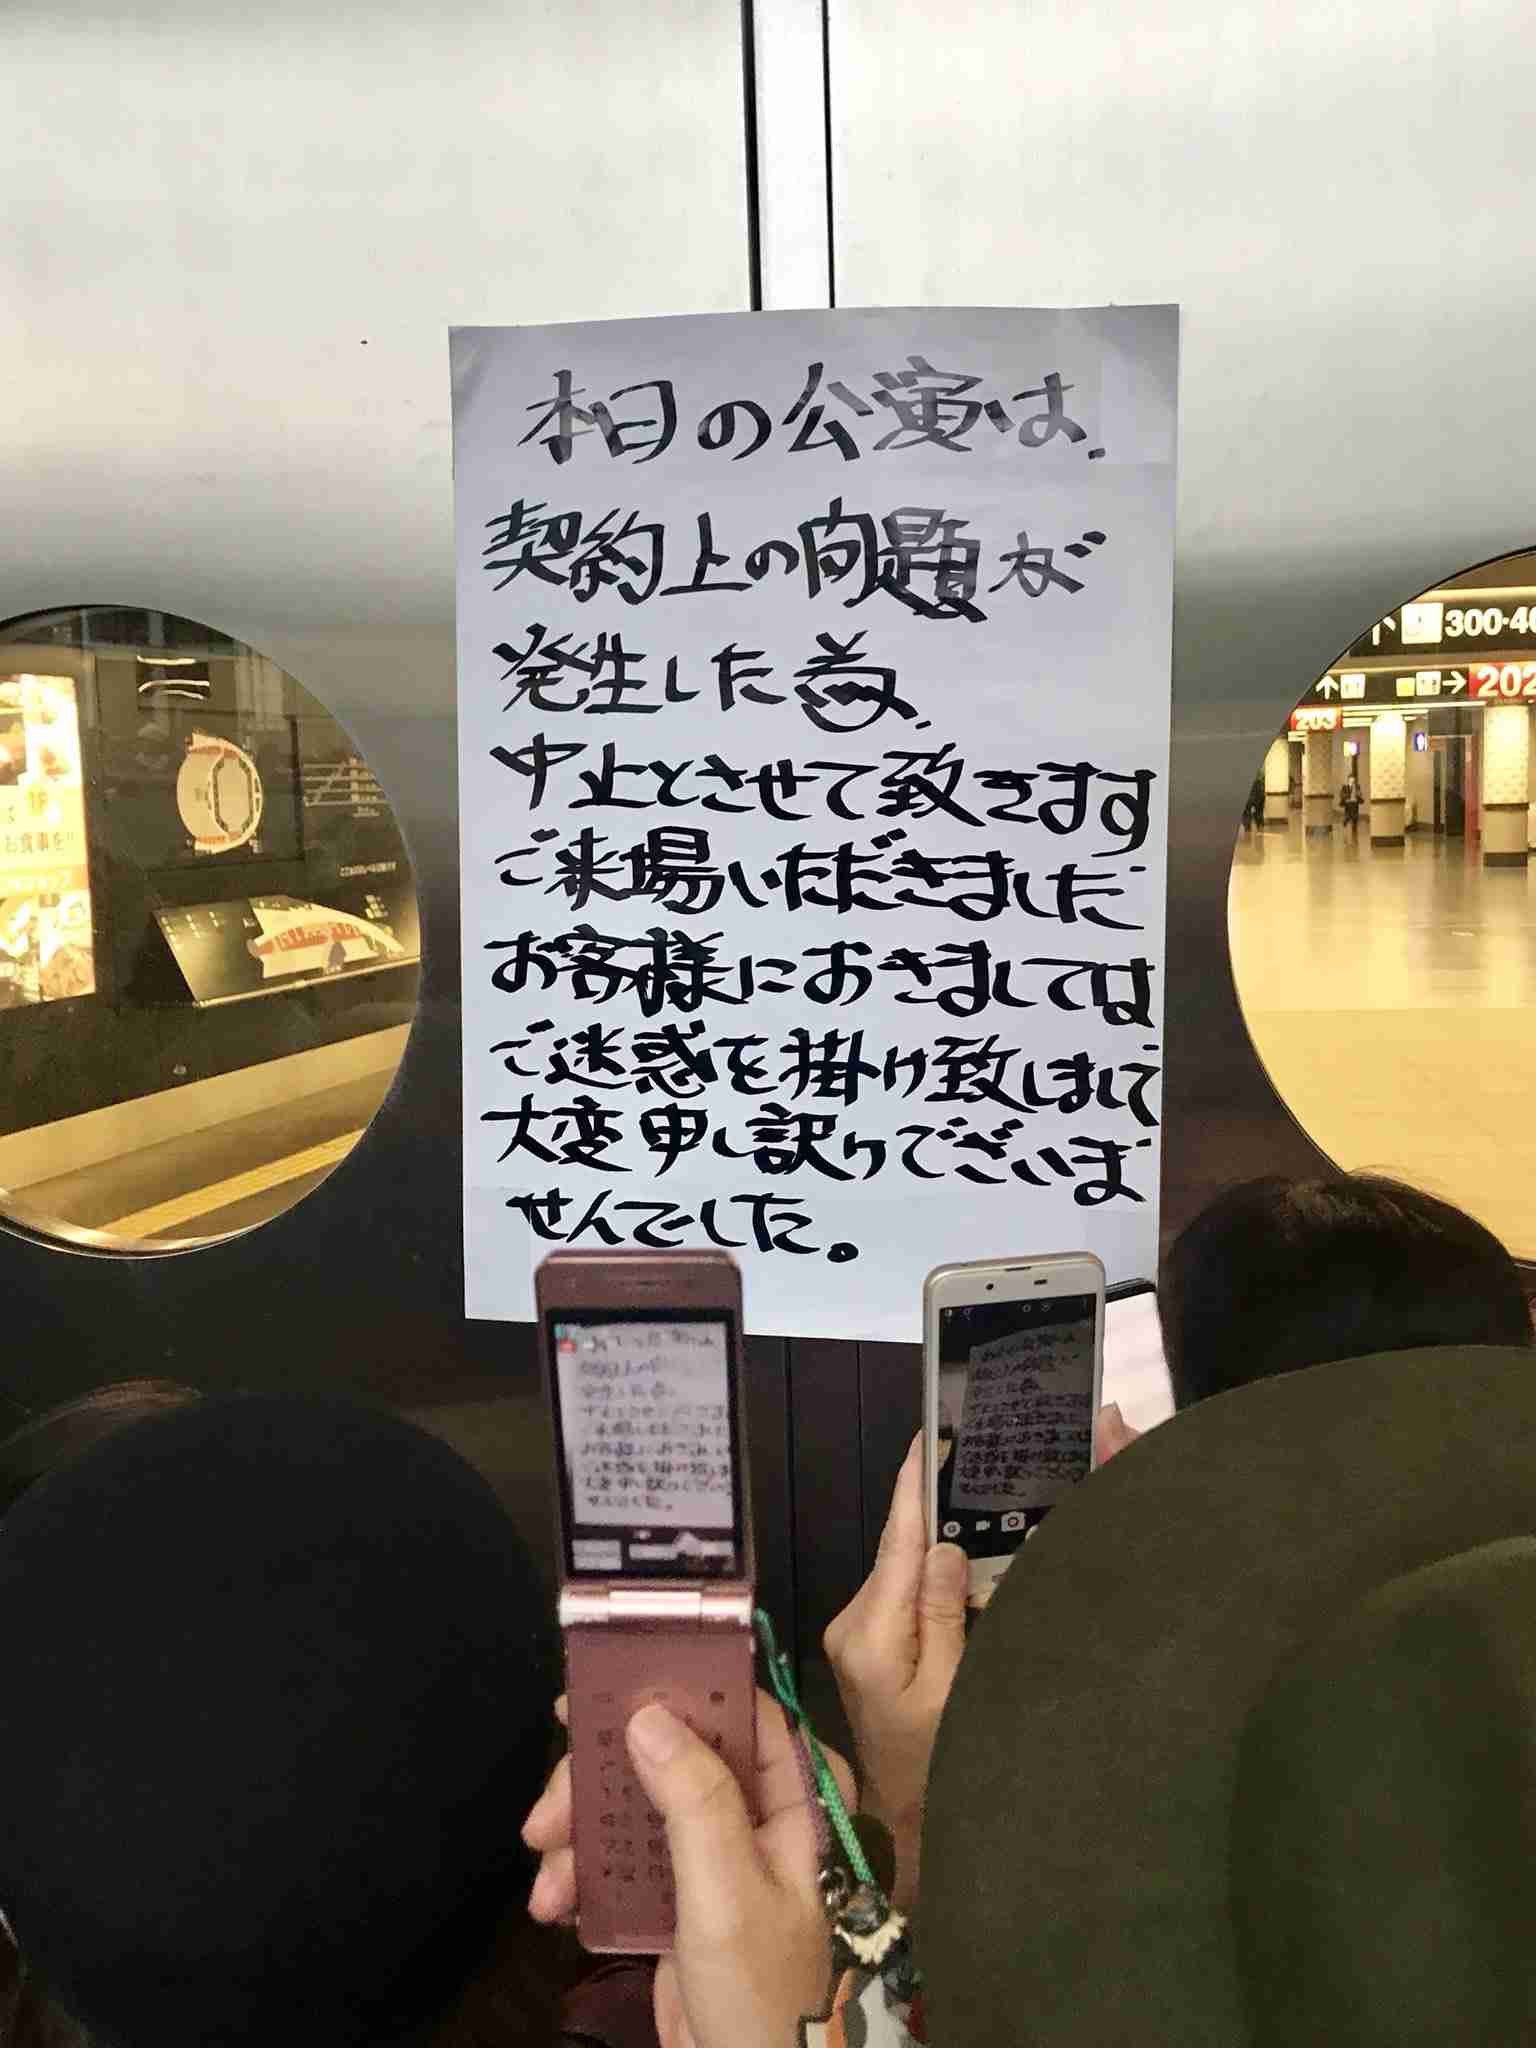 本日の公演は、
契約上の問題が
発生した為、
中止とさせて致きます
ご来場いただきました
お客様におきましては
ご迷惑を掛け致しまして
大変申し訳けでございま
せんでした。
300・40
202
203
お食事を